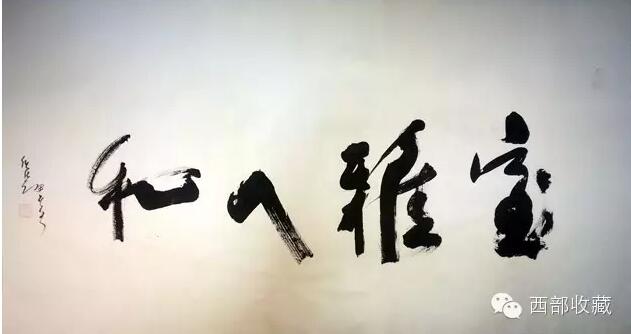 室雅人和
西部收藏